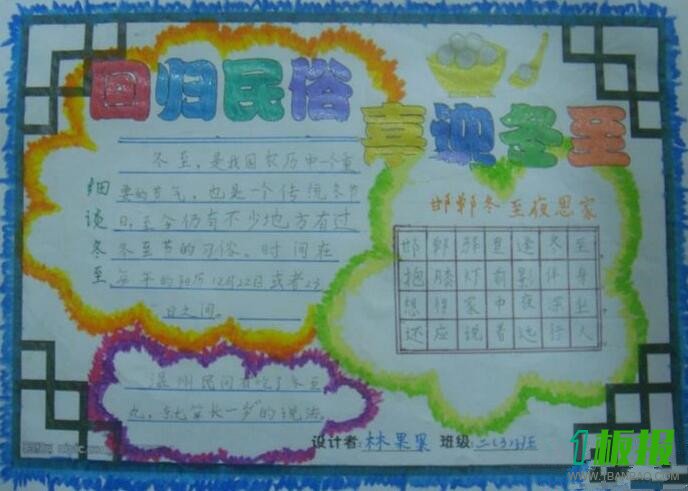 回归民俗
喜迎冬至
细谈冬至
冬至，是我国农历中一个重
要的节气，也是一个传统冬节
日，至今仍有不少地方有过
冬至节的习俗。时间在
每年的阳历12月22日或者23
日之间。
邯郸冬至夜思家
邯郸驿里逢冬至，
抱膝灯前影伴身
想得家中夜深坐，
还应说着远行人
温州民间有吃了冬至
丸，就算长一岁的说法。
设计者:林果果 班级:
板报
WWW.JBANBAO.COM